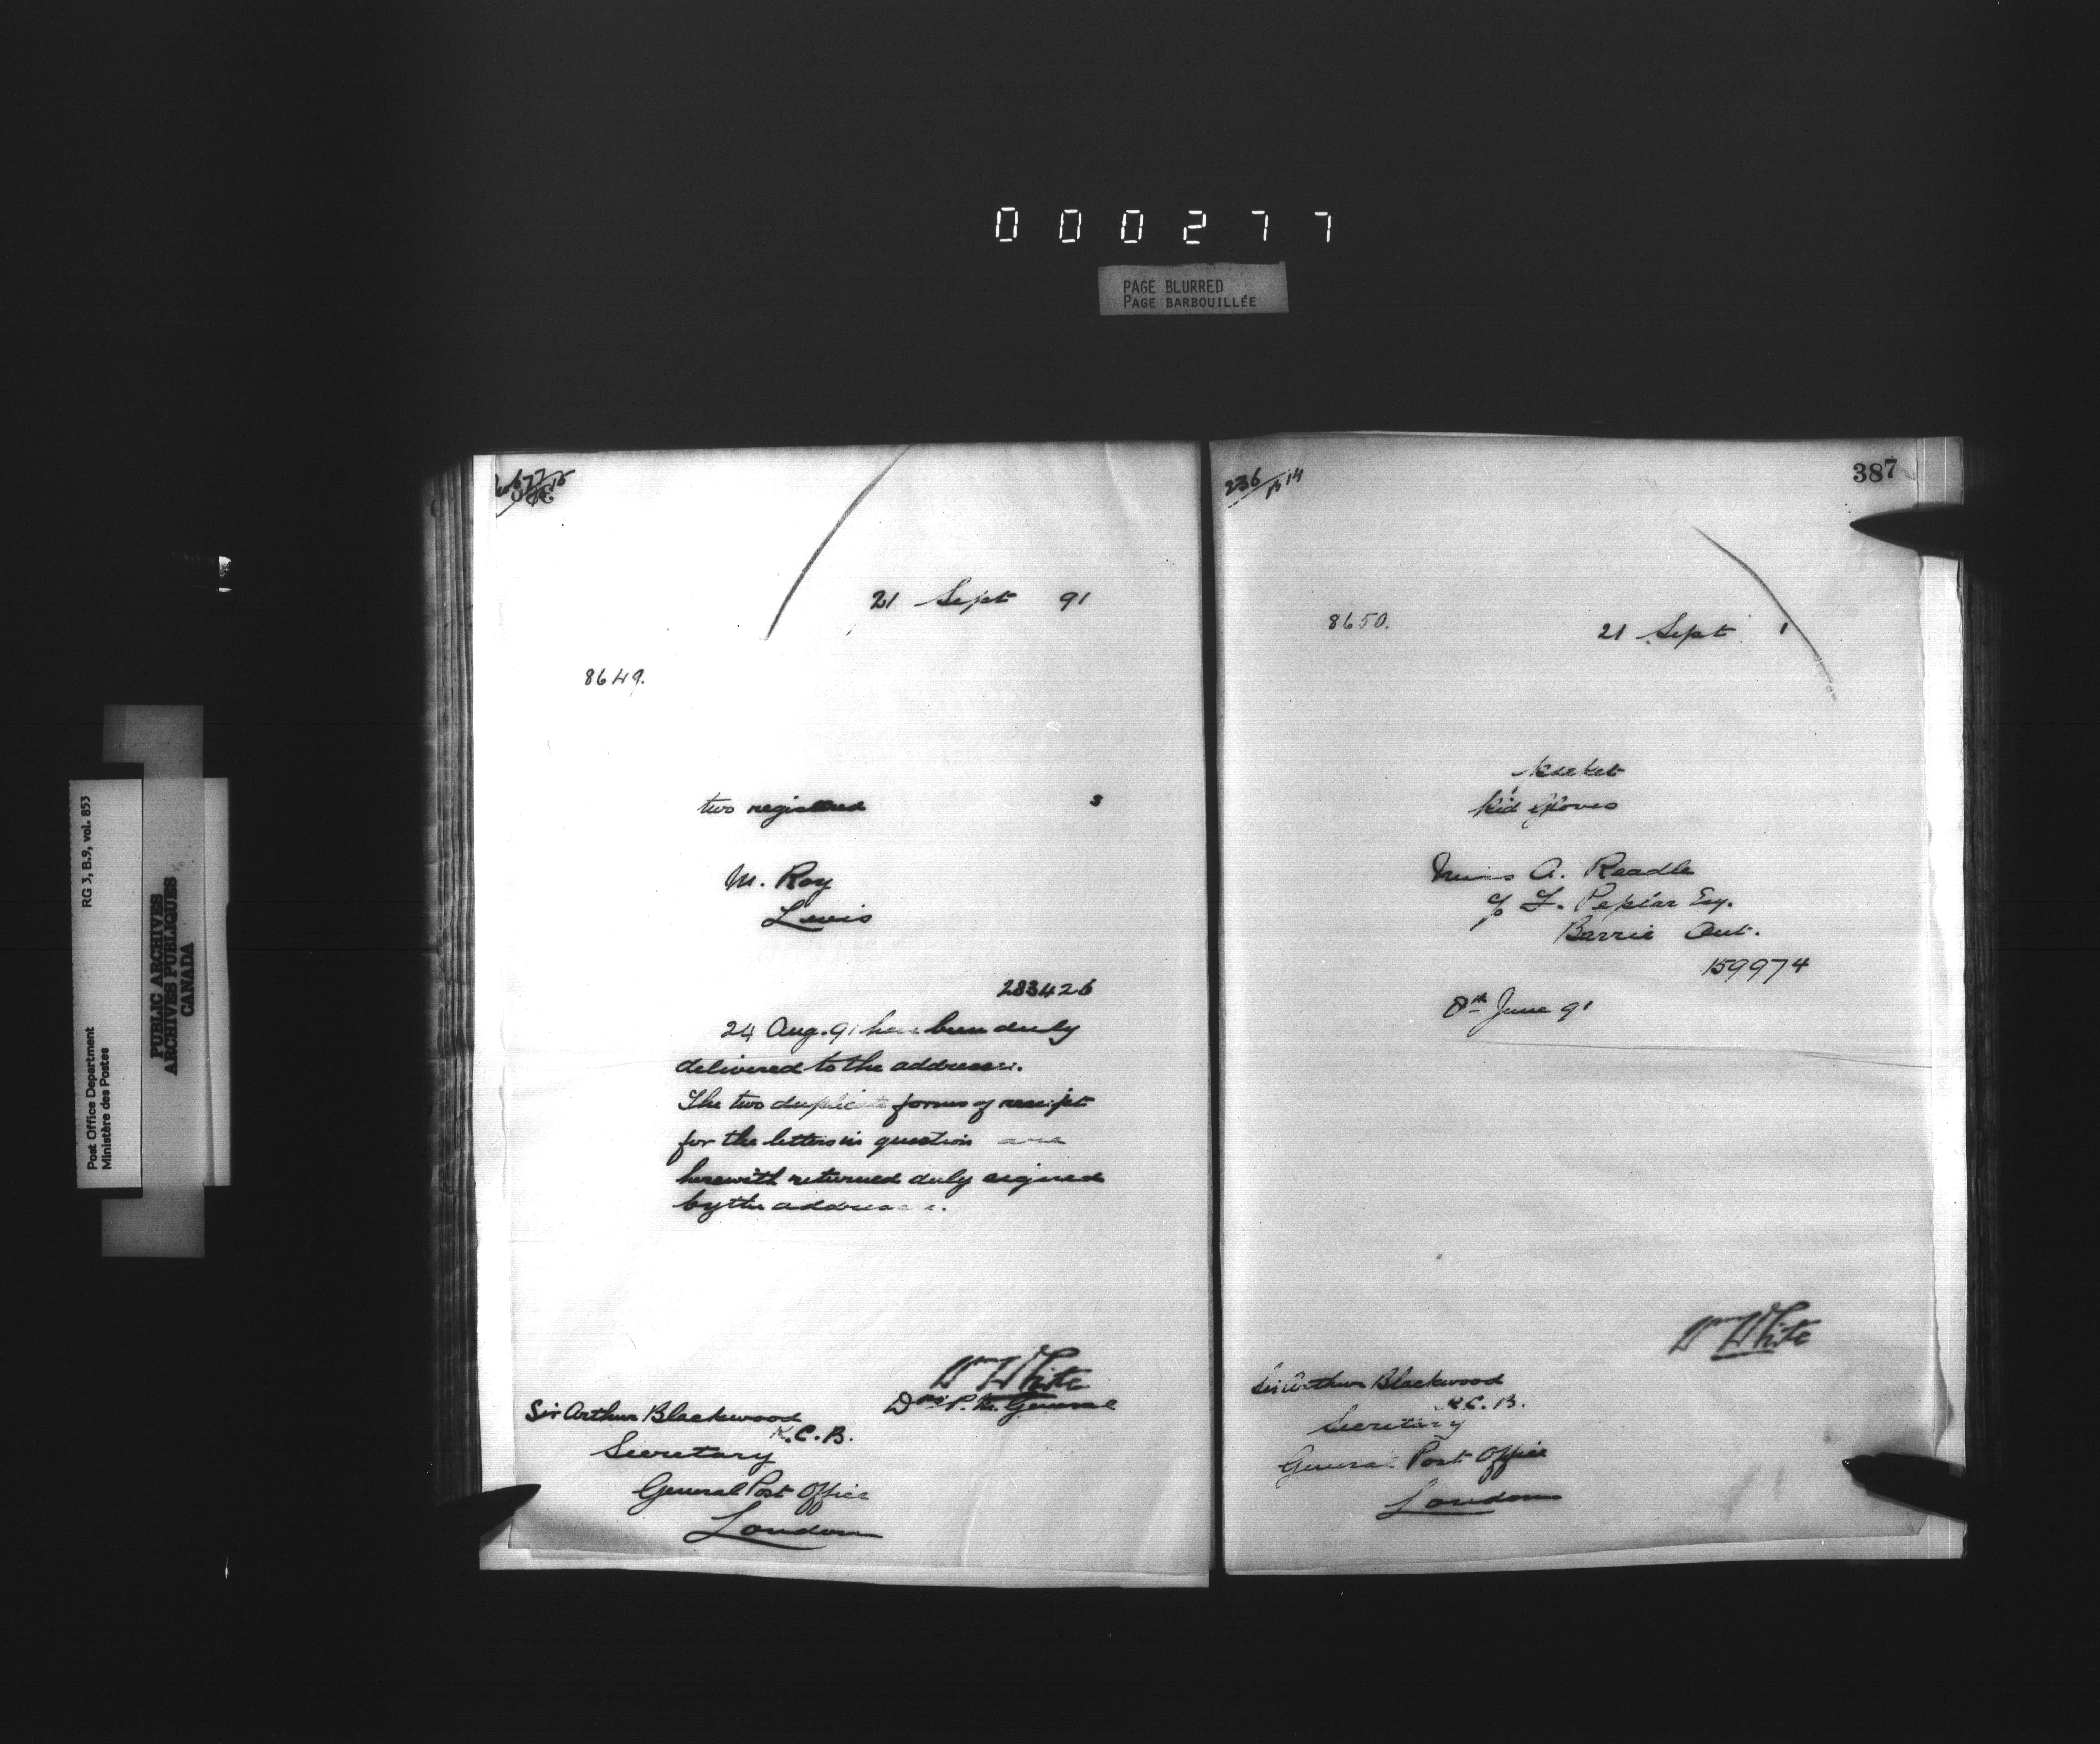 000277
PAGE BLURRED
PAGE BARBOUILLÉE
Post Office Department
Ministère des Postes
RG 3, B.9, vol. 853
PUBLIC ARCHIVES
ARCHIVES PUBLIQUES
CANADA
21 Sept 91
8649.
two registered s
M. Roy
Levis
283426
24 Aug. 91 have been duly
delivered to the addressee.
The two duplicate forms of receipt
for the letters in question are
herewith returned duly signed
by the addressee.
Wm White
D P. M. General
Sir Arthur Blackwood
K.C.B.
Secretary
General Post Office
London
236
B 14
387
8650.
21 Sept 1
packet
Kid gloves
Miss A. Readle
c/o F. Pepiar Esq.
Barrie Ont.
159974
8th June 91
Wm White
Sir Arthur Blackwood
K.C.B.
Secretary
General Post Office
London